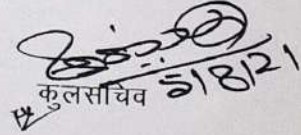 कुलसचिव 5/8/21